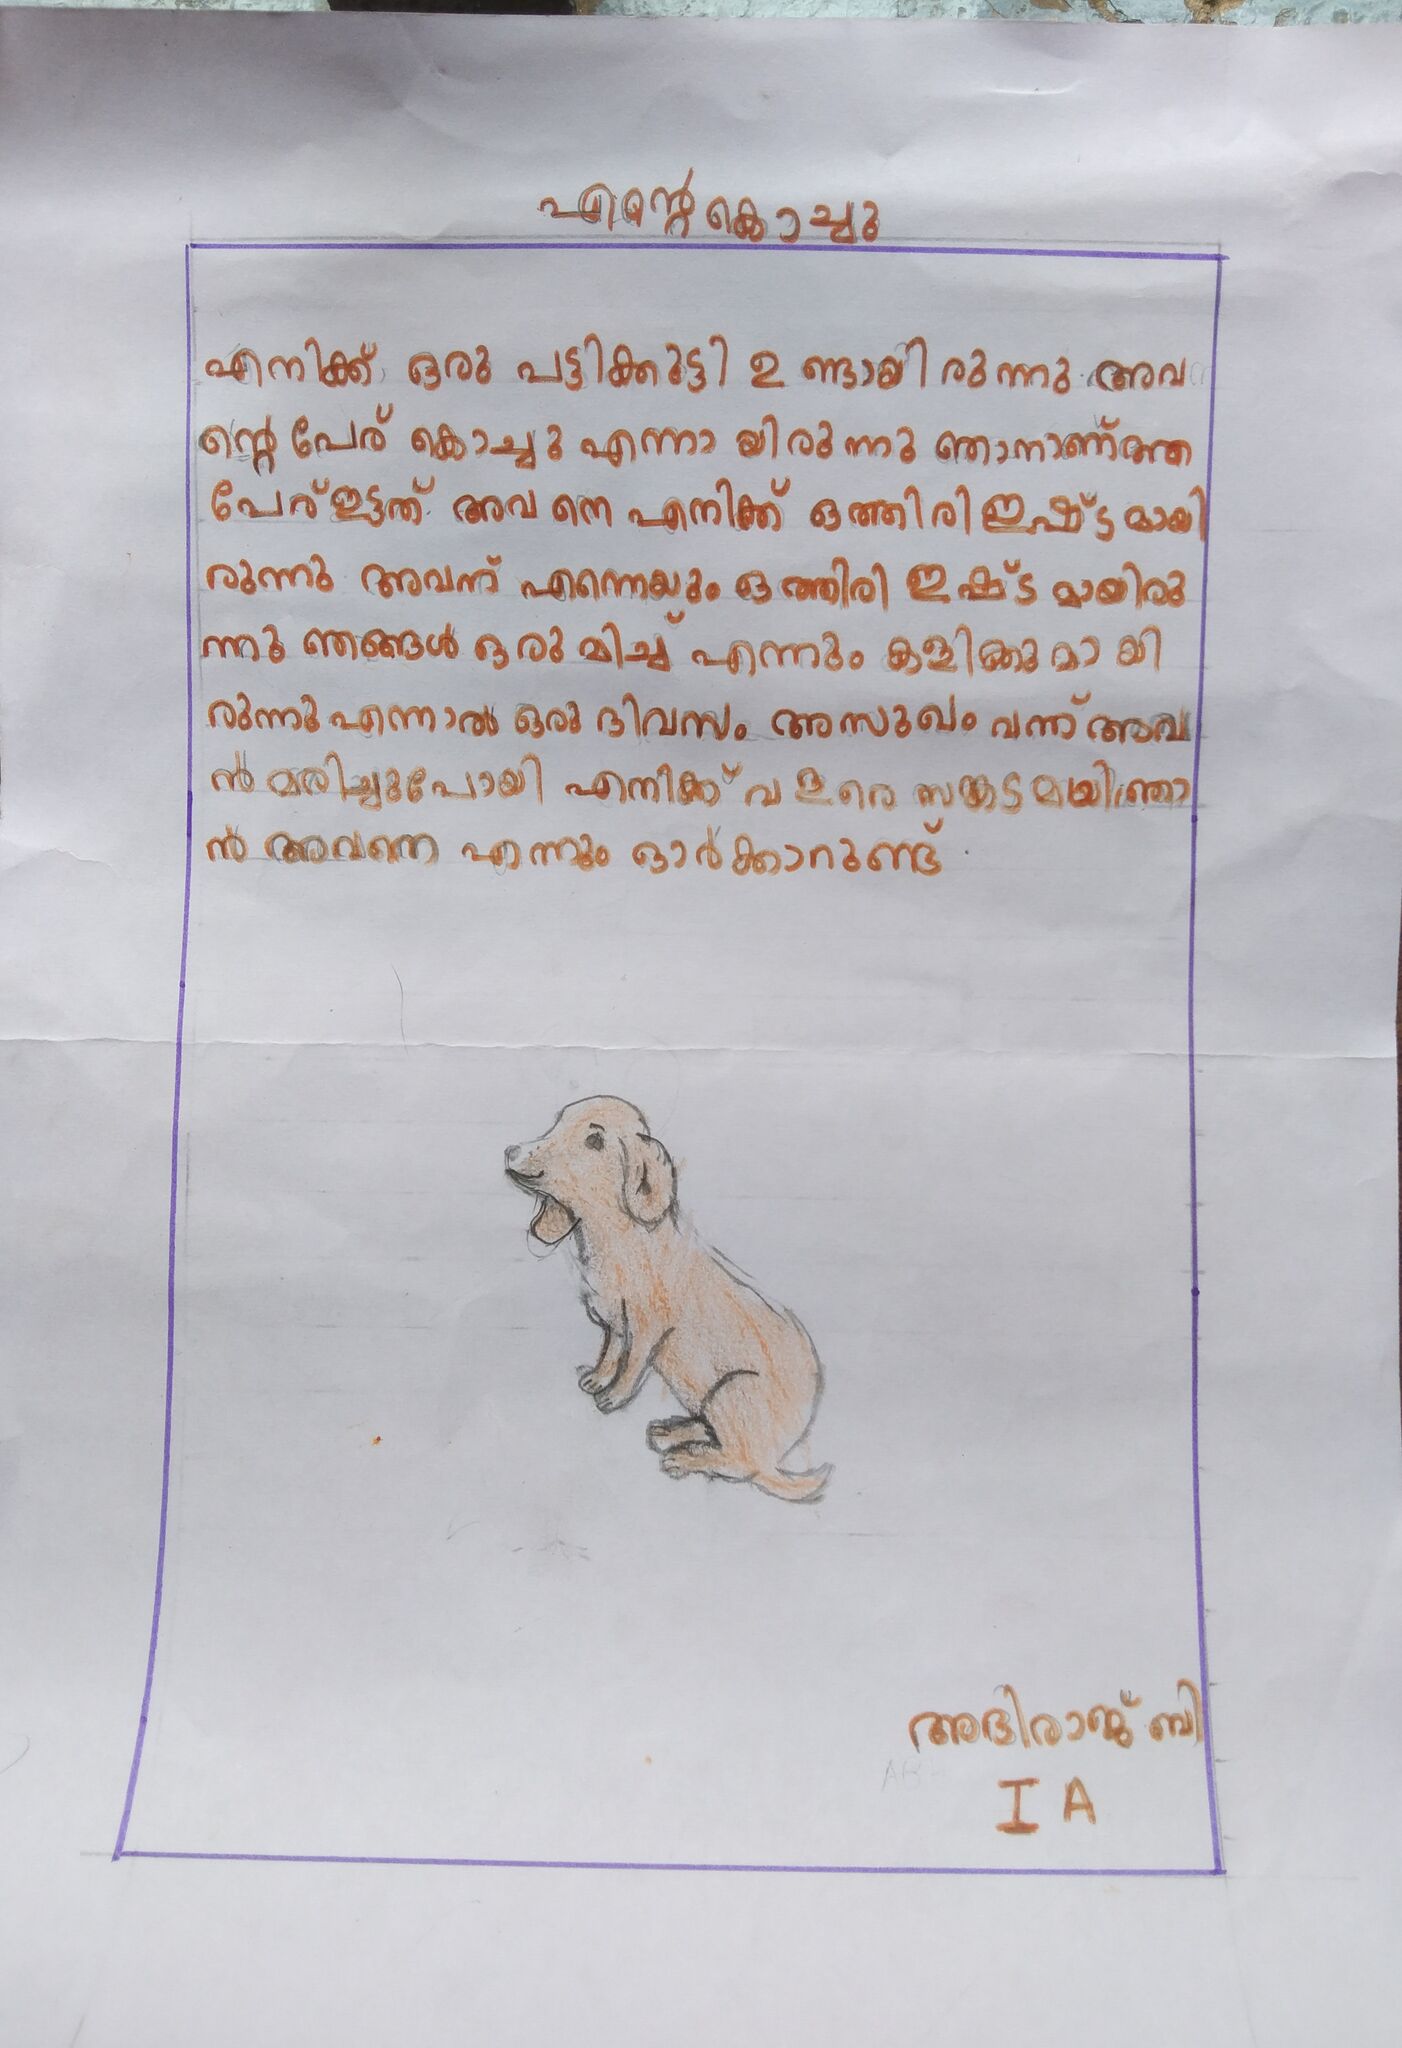 എന്റെ കൊച്ചു
എനിക്ക് ഒരു പട്ടിക്കുട്ടി ഉണ്ടായിരുന്നു. അവ
ന്റെ പേര് കൊച്ചു എന്നായിരുന്നു ഞാനാണ്ത്ത
പേര് ഇട്ടത് അവനെ എനിക്ക് ഒത്തിരി ഇഷ്ട്ടമായി
രുന്നു അവന് എന്നെയും ഒത്തിരി ഇഷ്ട്ടമായിരു
ന്നു ഞങ്ങൾ ഒരുമിച്ച് എന്നും കളിക്കുമായി
രുന്നു എന്നാൽ ഒരു ദിവസം അസുഖം വന്ന് അവ
ൻ മരിച്ചുപോയി എനിക്ക് വളരെ സങ്കടമയി ഞാ
ൻ അവനെ എന്നും ഓർക്കാറുണ്ട്.
ബി
I A